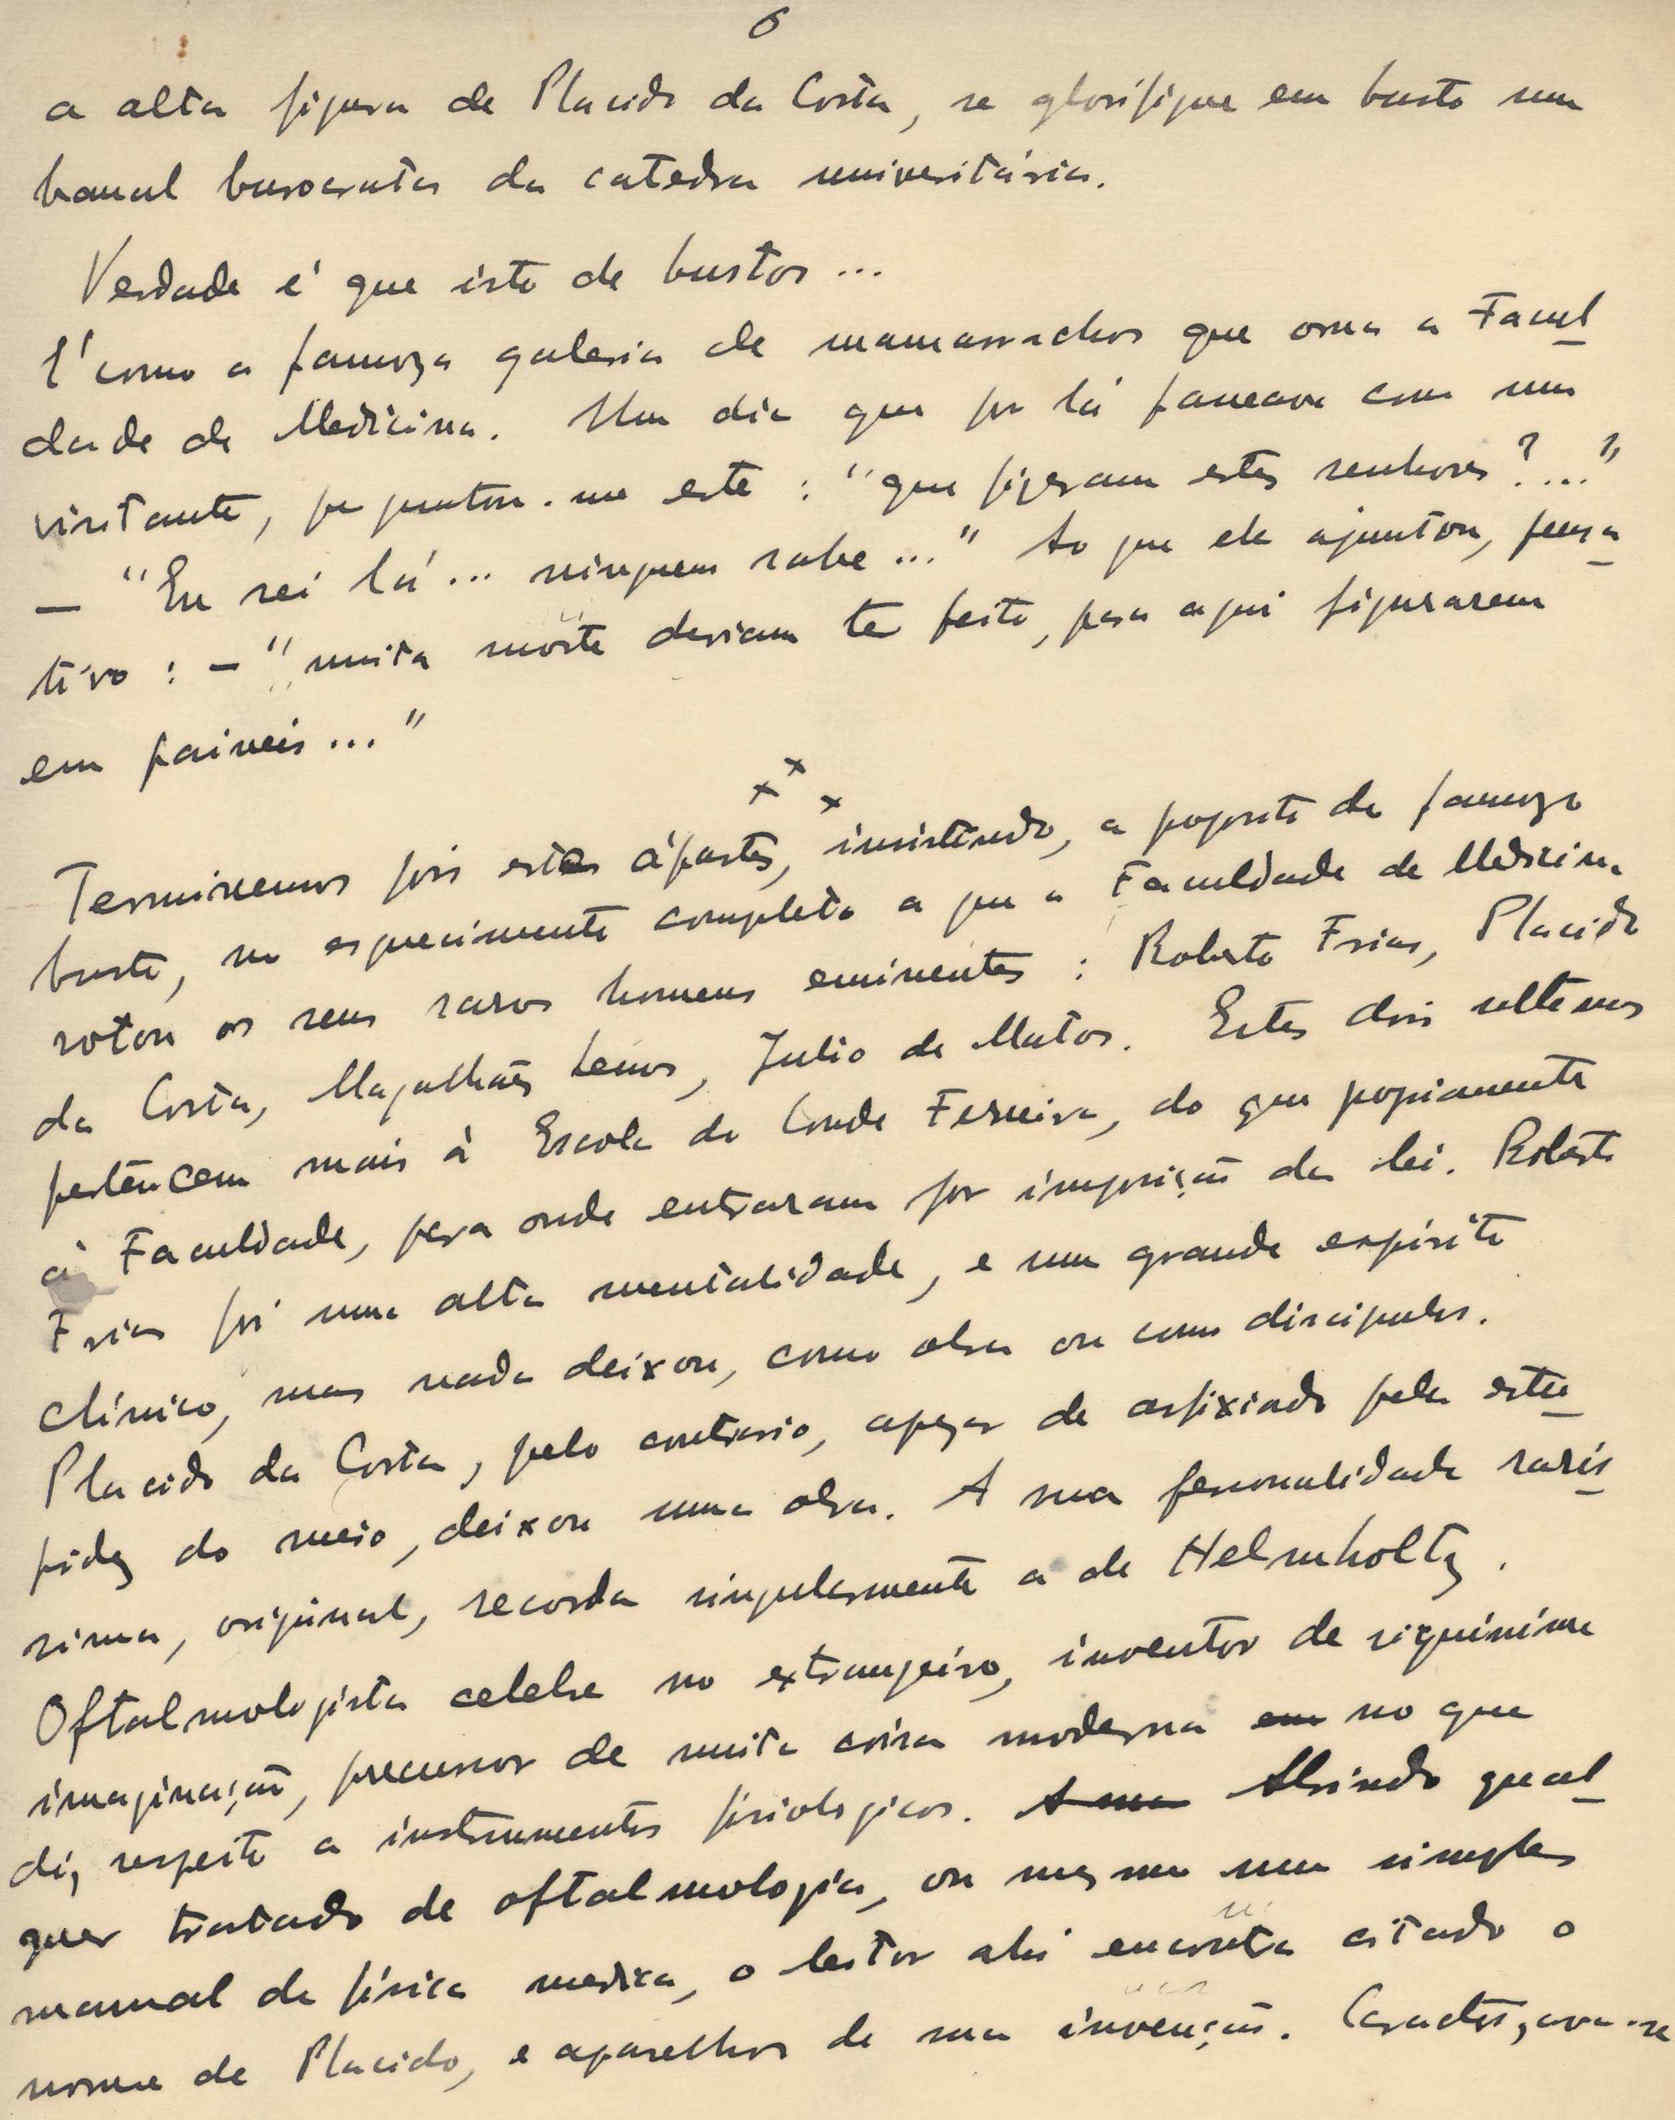 6
a alta figura de Placido da Costa, se glorifique em busto um
banal burocrata da catedra universitária.
Verdade é que isto de bustos...
É como a famoza galeria de mamarrachos que orna a Facul
dade de Medicina. Um dia que por lá passeava com um
visitante, perguntou-me este: "que fizeram estes senhores?..."
— "Eu sei lá... ninguem sabe..." Ao que ele ajuntou, pensa
tivo: — "muita morte deviam ter feito, para aqui figurarem
em paineis..."
x x x
Terminemos pois estes ápartes, insistindo, a proposito do famozo
busto, no esquecimento completo a que a Faculdade de Medicina
votou os seus raros homens eminentes: Roberto Frias, Placido
da Costa, Magalhães Lemos, Julio de Matos. Estes dois ultimos
pertencem mais à Escola do Conde Ferreira, do que propriamente
à Faculdade, para onde entraram por imposição da lei. Roberto
Frias foi uma alta mentalidade, e um grande espirito
clínico, mas nada deixou, como obra ou como discipulos.
Placido da Costa, pelo contrario, apezar de asfixiado pela estu
pidez do meio, deixou uma obra. A sua personalidade raris
sima, original, recorda singularmente a de Helmholtz.
Oftalmologista celebre no extrangeiro, inventor de
imaginação, precursor de muita coisa moderna em no que
diz respeito a instrumentos fisiologicos. A sua Abrindo qual
quer tratado de oftalmologia, ou mesmo um simples
manual de física medica, o leitor ahi encontra citado o
nome de Placido, e aparelhos de sua invenção. Caracterizava-se